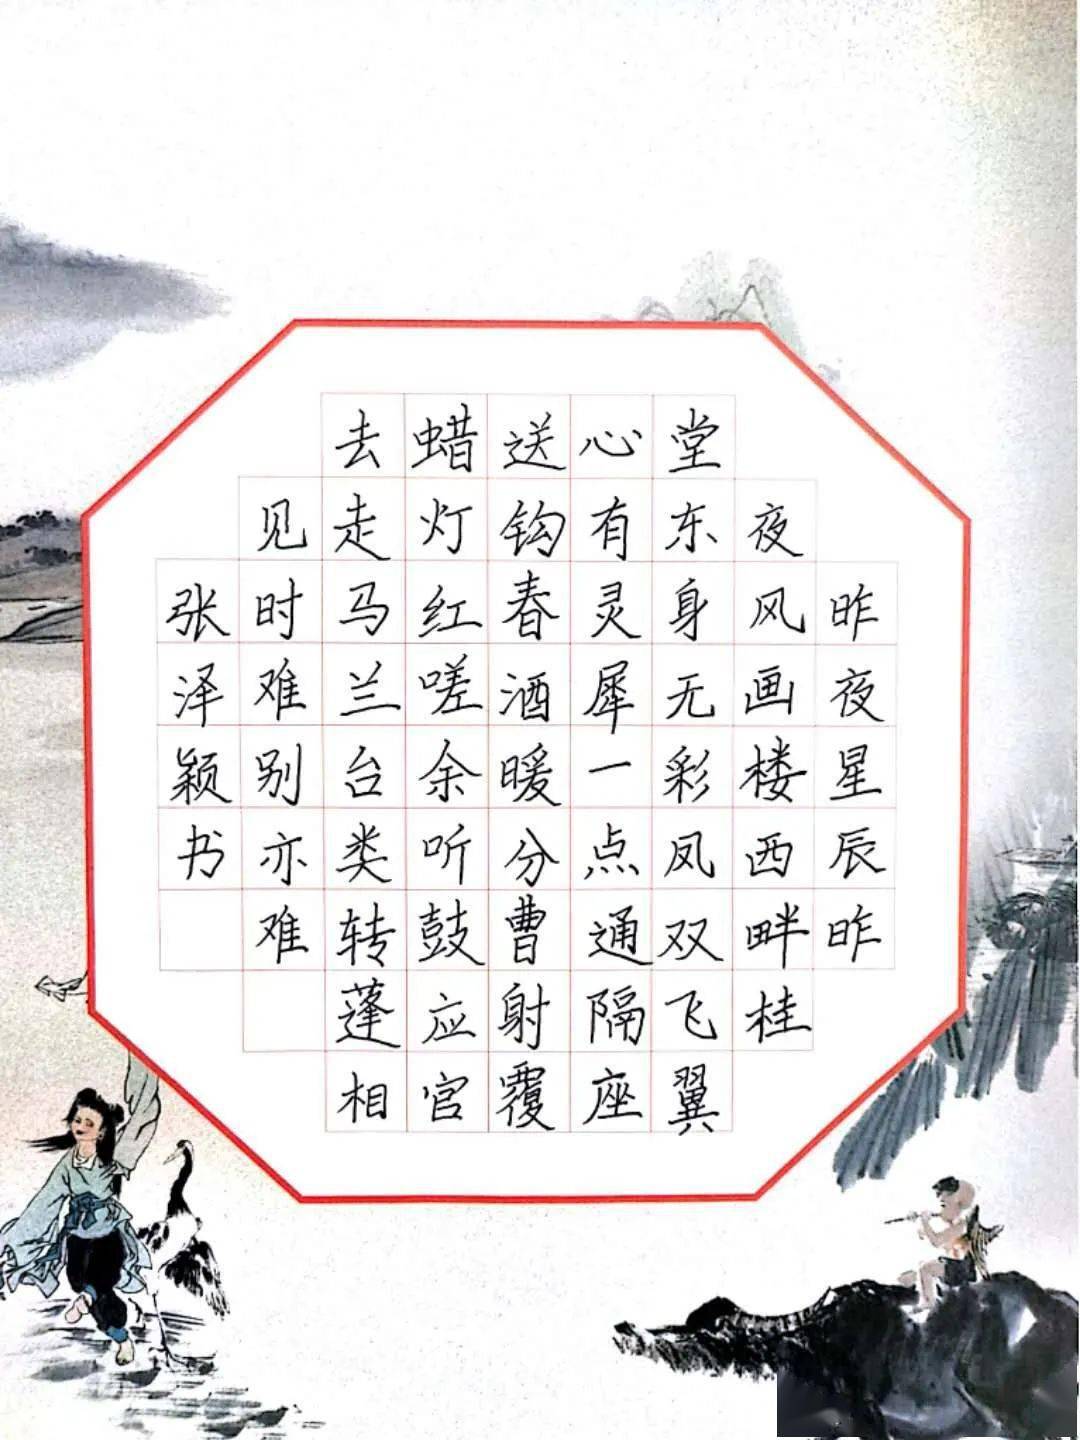 昨夜星辰昨
夜风画楼西畔桂
堂东身无彩凤双飞翼
心有灵犀一点通隔座
送钩春酒暖分曹射覆
蜡灯红嗟余听鼓应官
去走马兰台类转蓬相
见时难别亦难
张泽颖书